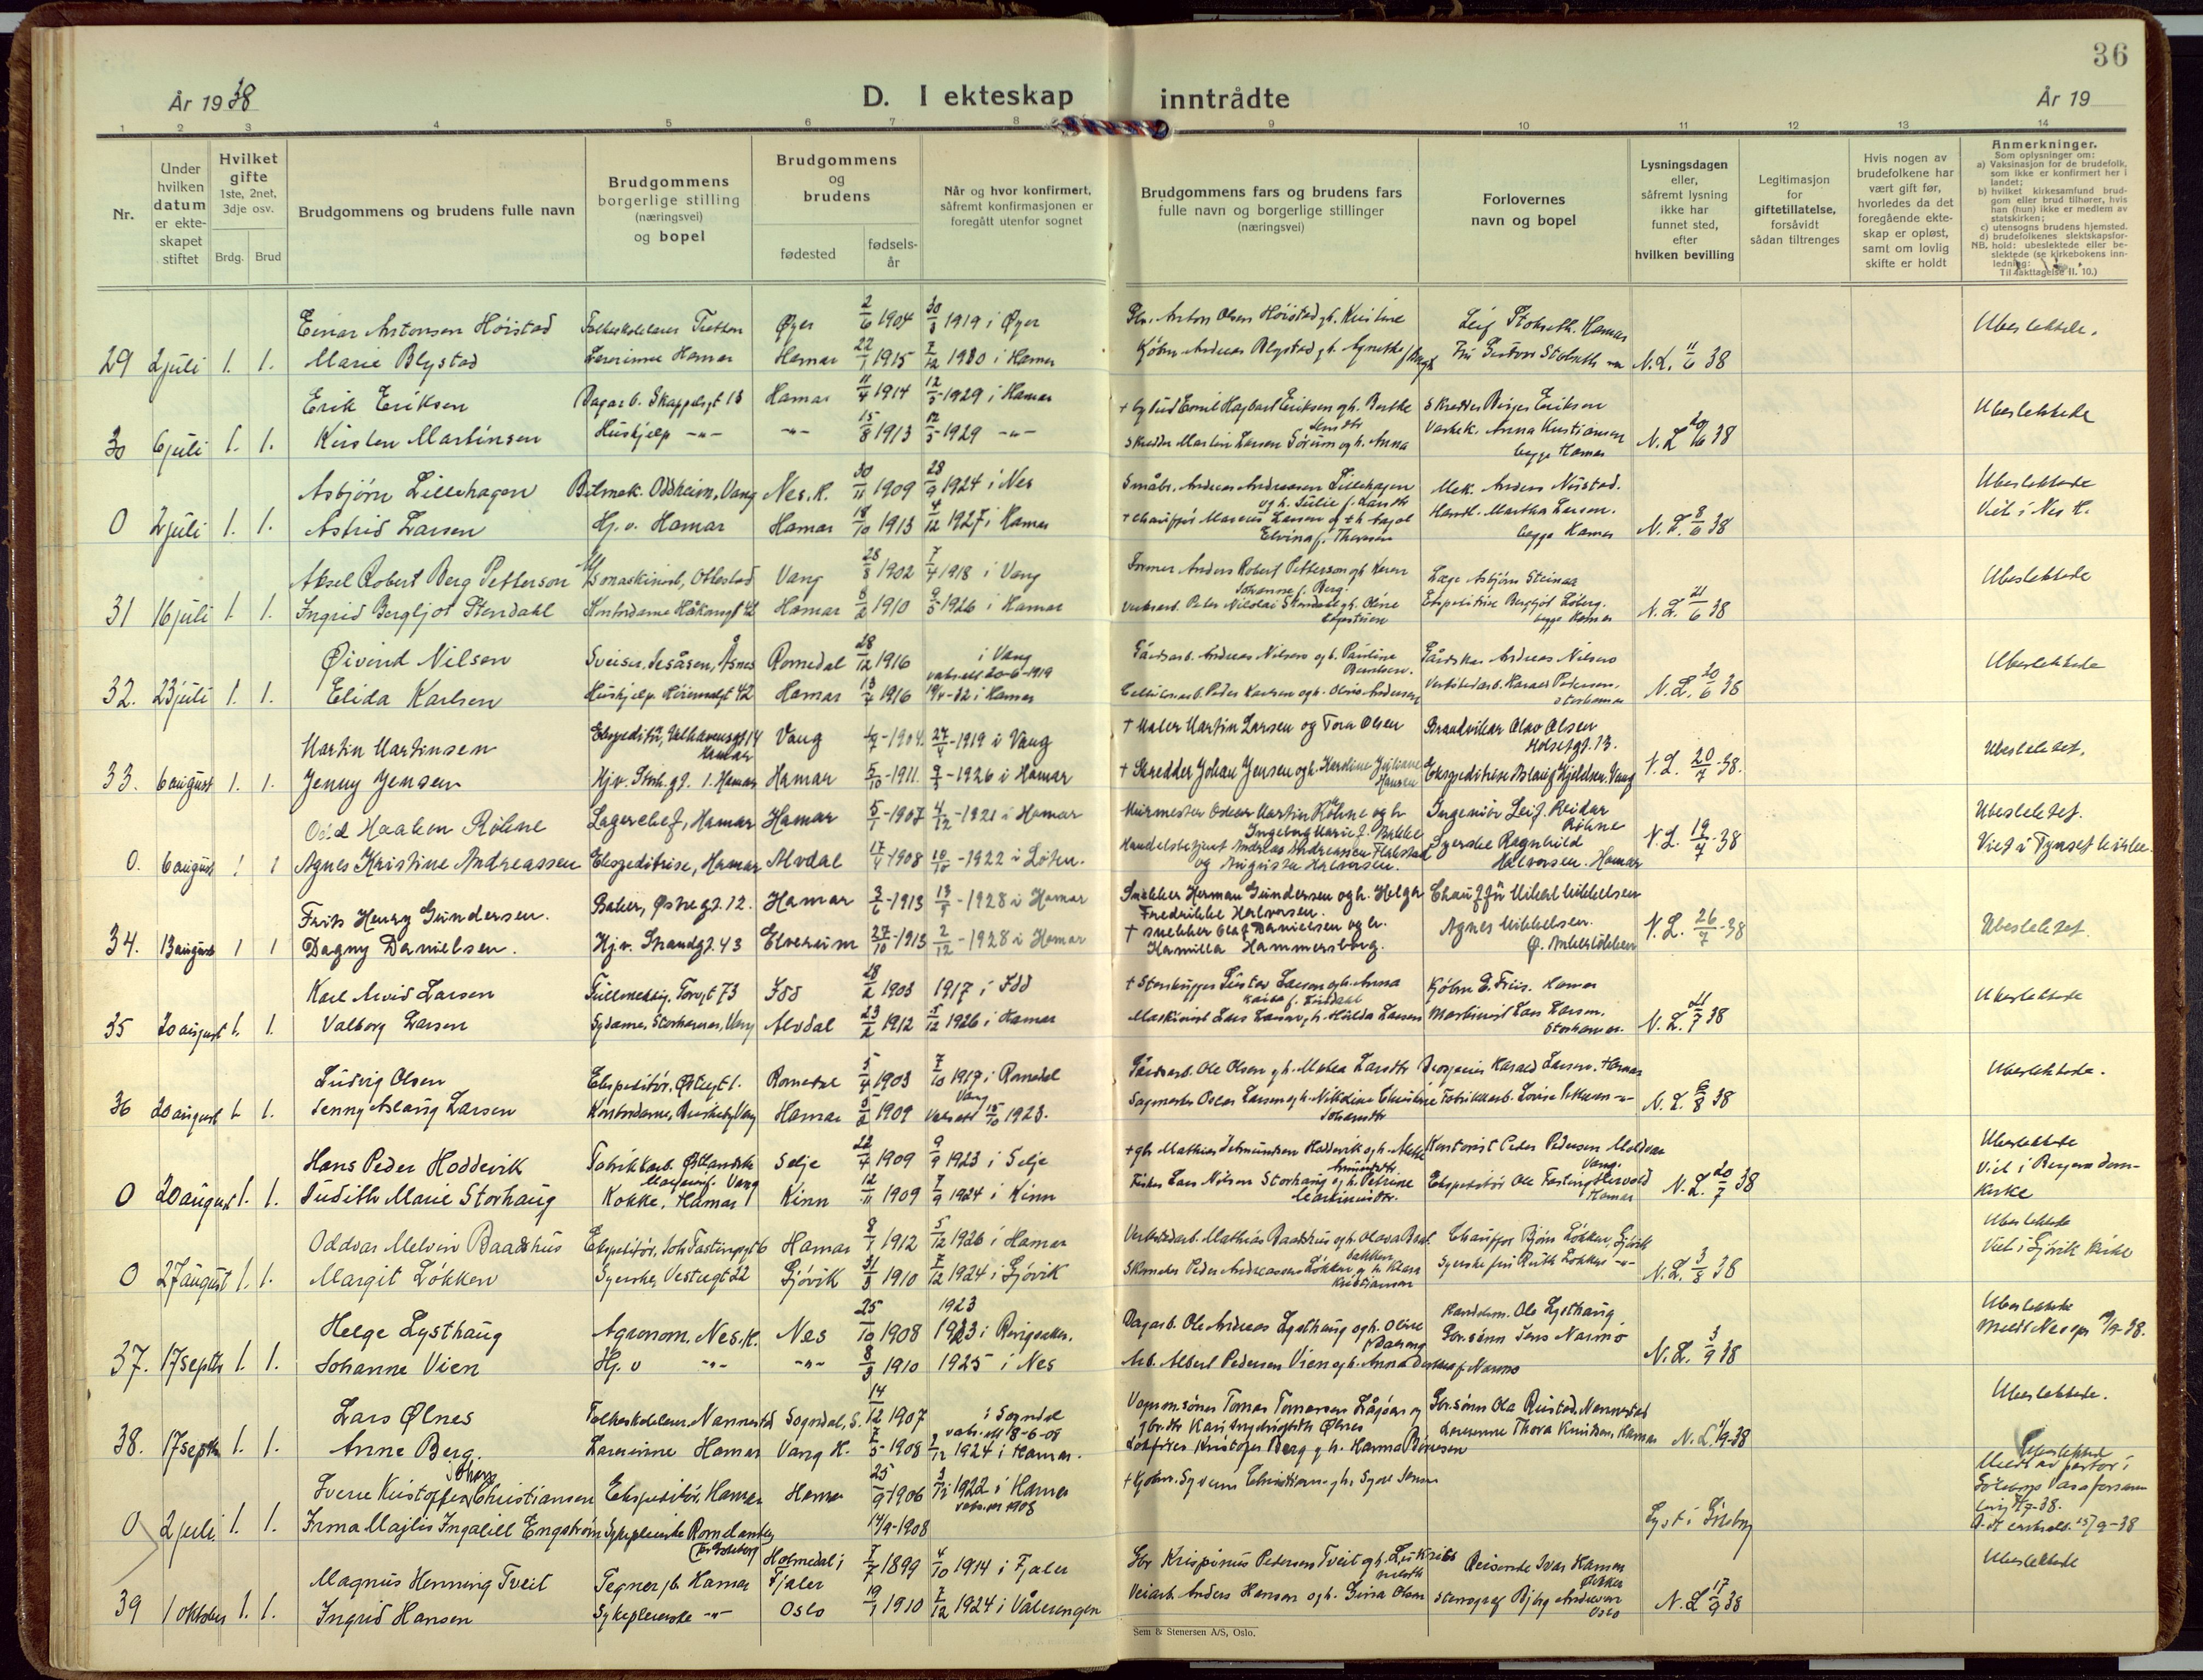 36
År 1938
D. I ekteskap inntrådte
År 19
1 2 3 4 5 6 7 8 9 10 11 12 13 14
Nr.
Under hvilken datum er ekteskapet stiftet
Hvilket gifte 1ste, 2net, 3dje osv.
Brdg. Brud
Brudgommens og brudens fulle navn
Brudgommens borgerlige stilling (næringsvei) og bopel
Brudgommens og brudens
fødested
fødselsår
Når og hvor konfirmert, såfremt konfirmasjonen er foregått utenfor sognet
Brudgommens fars og brudens fars fulle navn og borgerlige stillinger (næringsvei)
Forlovernes navn og bopel
Lysningsdagen eller, såfremt lysning ikke har funnet sted, efter hvilken bevilling
Legitimasjon for giftetillatelse, forsåvidt sådan tiltrenges
Hvis nogen av brudefolkene har vært gift før, hvorledes da det foregående ekteskap er opløst, samt om lovlig skifte er holdt
Anmerkninger.
Som oplysninger om:
a) Vaksinasjon for de brudefolk, som ikke er konfirmert her i landet;
b) hvilket kirkesamfund brudgom eller brud tilhører, hvis han (hun) ikke er medlem av statskirken;
c) utensogns brudens hjemsted.
d) brudefolkenes slektskapsforhold: ubeslektede eller beslektede (se kirkebokens innledning:
NB. Til iakttagelse II. 10.)
Einar Antonsen Høistad Folkeskolelærer Tretten Øyer 2/6 1904 1919 i Øyer Gbr. Anton Olsen Høistad og h. Kristine Leif Stokseth. Hamar Ubeslektede.
29 2 juli 1. 1. Marie Blystad Lærerinne Hamar Hamar 22/1 1915 7/12 1930 i Hamar Kjøbm. Andreas Blystad og h. Agnethe N.L. 11/6 38
Erik Eriksen Dagarb. Skappelsgt 13 Hamar 11/4 1914 12/5 1929 i Hamar Skredder Birger Eriksen Ubeslektede
30 6 juli 1. 1. Kirsten Martinsen Hushjelp -"- -"- 15/8 1913 12/5 1929 -"- Skredder Martin Larsen Sørum og h. Anna Anna Kristiansen begge Hamar N.L. 20/6 38
Asbjørn Lillehagen Bilmek. Oddheim, Vang Nes. H. 30/11 1909 28/9 1924 i Nes Småbr. Andreas Andreassen Lillehagen og h. Julie f. Larsdtr Mek. Anders Nustad. Ubeslektede
0 2 juli 1. 1. Astrid Larsen Hj. v. Hamar Hamar 18/10 1913 4/12 1927 i Hamar + Chauffør Marius Larsen Elvina f. Thoresen Handl. Martha Larsen. begge Hamar N.L. 8/6 38 Viet i Nes H.
Aksel Robert Berg Petterson Ottestad Vang 28/8 1902 7/4 1918 i Vang Former Anders Robert Petterson og h. Karen Johanne f. Berg. Læge Asbjørn Steinar Ubeslektede
31 16 juli 1. 1. Ingrid Bergljot Stendahl Kontordame Håkonsgt 42 Hamar 8/2 1910 9/5 1926 i Hamar Verksarb. Peter Nikolai Stendahl og h. Oline Ekspeditrise Bergljot Loberg. begge Hamar N.L. 21/6 38
Øivind Nilsen Sveiser, Åsnes Romedal 28/12 1916 i Vang vaks. att 20-6-1919 Gårdsarb. Andreas Nilsen og h. Pauline Berntsen. Gårdskar Andreas Nilsen Ubeslektede
32. 23 juli 1. 1. Elida Karlsen Hushjelp 42 Hamar 1916 i Hamar Peder Karlsen og h. Andersen Verkstedarb. Harald Pedersen. Storhamar N.L. 20/6 38
Martin Martinsen Ekspeditør, Welhavensgt 14 Hamar Vang 1904. 27/4 - 1919 i Vang + Maler Martin Larsen og Tora Olsen Brandvikar Olav Olsen Holsetgt. 13. Ubeslektet.
33. 6 august 1. 1. Jenny Jensen Hjv. Storh. gt. 1. Hamar Hamar 5/10 - 1911. 9/5 - 1926 i Hamar + Skredder Johan Jensen og h. Karoline Juliane Hansen Ekspeditrise Aslaug Kjeldsen. Vang N.L. 20/7 - 38.
Odd Haakon Røhne Lagerchef, Hamar Hamar 5/1 - 1907 4/12 - 1921 i Hamar Murmester Oskar Martin Røhne og h Ingeborg Marie f. Bakke Ingeniør Leif Reidar Røhne Ubeslektet.
0. 6 august 1 1 Agnes Kristine Andreassen Ekspeditrise, Hamar Alvdal 17/4 - 1908 10/10 - 1922 i Løten. Handelsbetjent Andreas Andreassen Flakstad og Augusta Halvorsen. Syerske Ragnhild Halvorsen. Hamar N.L. 19/7 - 38 Viet i Tynset kirke
Frits Henry Gundersen. Baker, Østregt. 12. Hamar 3/6 - 1913 13/5 - 1928 i Hamar Snekker Herman Gundersen og h. Helga Fredrikke Halvorsen. Chauffør Mikkel Mikkelsen
34. 13 august 1 1 Dagny Danielsen. Hjv. Strandgt. 43 Elverum 27/10 - 1913 2/12 - 1928 i Hamar + snekker Olaf Danielsen og h. Kamilla Hammersborg. Agnes Mikkelsen. Ø. Ankerløkken N.L. 26/7 - 38 Ubeslektet.
Karl Arvid Larsen Tullmektig. Torvgt 73 Idd 28/2 1903 1917 i Idd Gustav Larsen og h. Anna Kjøbm E. Friis. Hamar Ubeslektede
35 20 august 1. 1. Valborg Larsen Sydame, Storhamar, Vang Alvdal 23/2 1912 5/12 1926 i Hamar Maskinist Lars Larsen og h. Hulda Larsen Maskinist Lars Larsen. Storhamar. N.L. 21/7 38
Ludvig Olsen Ekspeditør. Østregt 1. Romedal 5/4 1903 7/10 1917 i Romedal Gårdsarb. Ole Olsen og h. Mathea Larsdtr Harald Larsen. Hamar Ubeslektede.
36 20 august 1. 1. Jenny Aslaug Larsen Kontordame, Vang Hamar 1909 Vang vaks. att 15/10 1923. Sagmester Oskar Larsen og h. Nikoline Christine Johansdtr Fabrikkarb. Lovise -"- N.L. 6/8 38
Hans Peder Hoddevik Fabrikkarb. Østlandske Vang Selje 22/4 1909 9/9 1923 i Selje + gbr Mathias Hoddevik og h. Kontorist Peder Pedersen Moldvær Vang. Ubeslektede
0 20 august 1. 1. Judith Marie Storhaug Kokke, Hamar Kinn 12/11 1909 7/9 1924 i Kinn Fisker Lars Nilsen Storhaug og h. Petrine Martinusdtr. Ekspeditør Ole Hamar N.L. 20/7 38 Viet i Bergens Domkirke
Oddvar Melvin Baadshus Ekspeditør, Hamar 8/1 1912 5/12 1926 i Hamar Verkstedarb. Mathias Baadshus og h. Olava Chauffør Bjørn Løkken, Gjøvik Ubeslektede
0 27 august 1. 1. Margit Løkken Syerske, Vestregt 22 Gjøvik 31/3 1910 7/12 1924 i Gjøvik Skomaker Peder Andreassen Løkken og h. Klara Kristiansen Syerske frk Ruth Løkken -"- N.L. 3/8 38 Viet i Gjøvik kirke
Helge Lysthaug Agronom. Nes. H. Nes 25/10 1908 1923 i Ringsaker. Dagarb. Ole Andreas Lysthaug og h. Oline Handelsm. Ole Lysthaug Ubeslektede
37. 17 septbr 1. 1. Johanne Vien Hj. v -"- -"- 8/3 1910 1925 i Nes Arb. Albert Pedersen Vien og h. Anna Gbr. sønn Jens Narmo N.L. 3/9 38
Lars Ølnes Folkeskolelærer, Nannestad Sogndal, S. 14/12 1907 i Sogndal vaks. att 18-6-08 og gbr. dtr Kari Ølnes Gbr. sønn Ola Rustad, Nannestad Ubeslektede.
38. 17 septbr 1. 1. Anne Berg. Lærerinne Hamar Vang H. 7/5 1908 1924 i Hamar. Lokfører Kristofer Berg og h. Hanna Børresen Lærerinne Thora Knudsen, Hamar N.L. 1/9-38
Sverre Kristoffer Johan Christiansen Ekspeditør, Hamar Hamar 25/9 1906 1922 i Hamar vaks. att 1908 Christiansen og h. Ubeslektede
0 2 juli 1. 1. Irma Majlis Ingalill Engström Sykepleierske Romelanda 14/9-1908 Lyst i Göteborg
Magnus Henning Tveit Tegner, Hamar Holmedal i Fjaler 7/7 1899 4/10 1914 i Fjaler Gbr Krispinus Pedersen Tveit og h. Reisende Ivar Hansen Ubeslektede
39 1 oktober 1. 1. Ingrid Hansen Sykepleierske -"- Oslo 19/1 1910 7/12 1924 i Vålerengen Veiarb. Anders Hansen og h. Gina Olsen Stenograf Andersen Oslo N.L. 17/9 38
Sem & Stenersen A/S, Oslo.